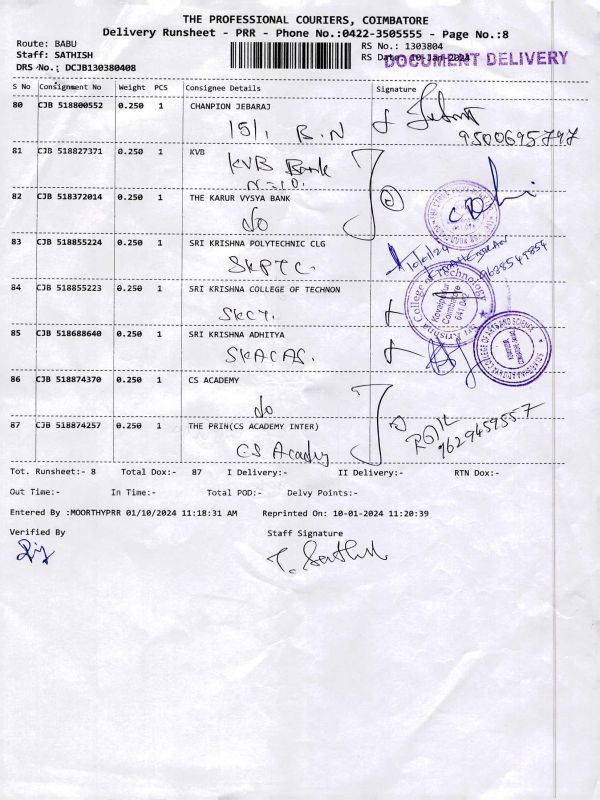 THE PROFESSIONAL COURIERS, COIMBATORE
Delivery Runsheet - PRR - Phone No.:0422-3505555 - Page No.:8
Route: BABU
RS No.: 1303804
Staff: SATHISH
RS Date: 10-Jan-2024
DOCUMENT DELIVERY
DRS No.: DCJB130380408
S No Consignment No Weight PCS Consignee Details Signature
80 CJB 518800552 0.250 1 CHANPION JEBARAJ
15/1 B.N
9500695797
81 CJB 518827371 0.250 1 KVB
KVB Bank
82 CJB 518372014 0.250 1 THE KARUR VYSYA BANK
do
10/01/24
83 CJB 518855224 0.250 1 SRI KRISHNA POLYTECHNIC CLG
SKPTC.
84 CJB 518855223 0.250 1 SRI KRISHNA COLLEGE OF TECHNON
SKCT.
College of Technology
Kovaipudur
Coimbatore
641 042
85 CJB 518688640 0.250 1 SRI KRISHNA ADHITYA
SKACAS.
86 CJB 518874370 0.250 1 CS ACADEMY
do
87 CJB 518874257 0.250 1 THE PRIN(CS ACADEMY INTER)
CS Academy
9629459557
Tot. Runsheet:- 8 Total Dox:- 87 I Delivery:- II Delivery:- RTN Dox:-
Out Time:- In Time:- Total POD:- Delvy Points:-
Entered By :MOORTHYPRR 01/10/2024 11:18:31 AM Reprinted On: 10-01-2024 11:20:39
Verified By Staff Signature